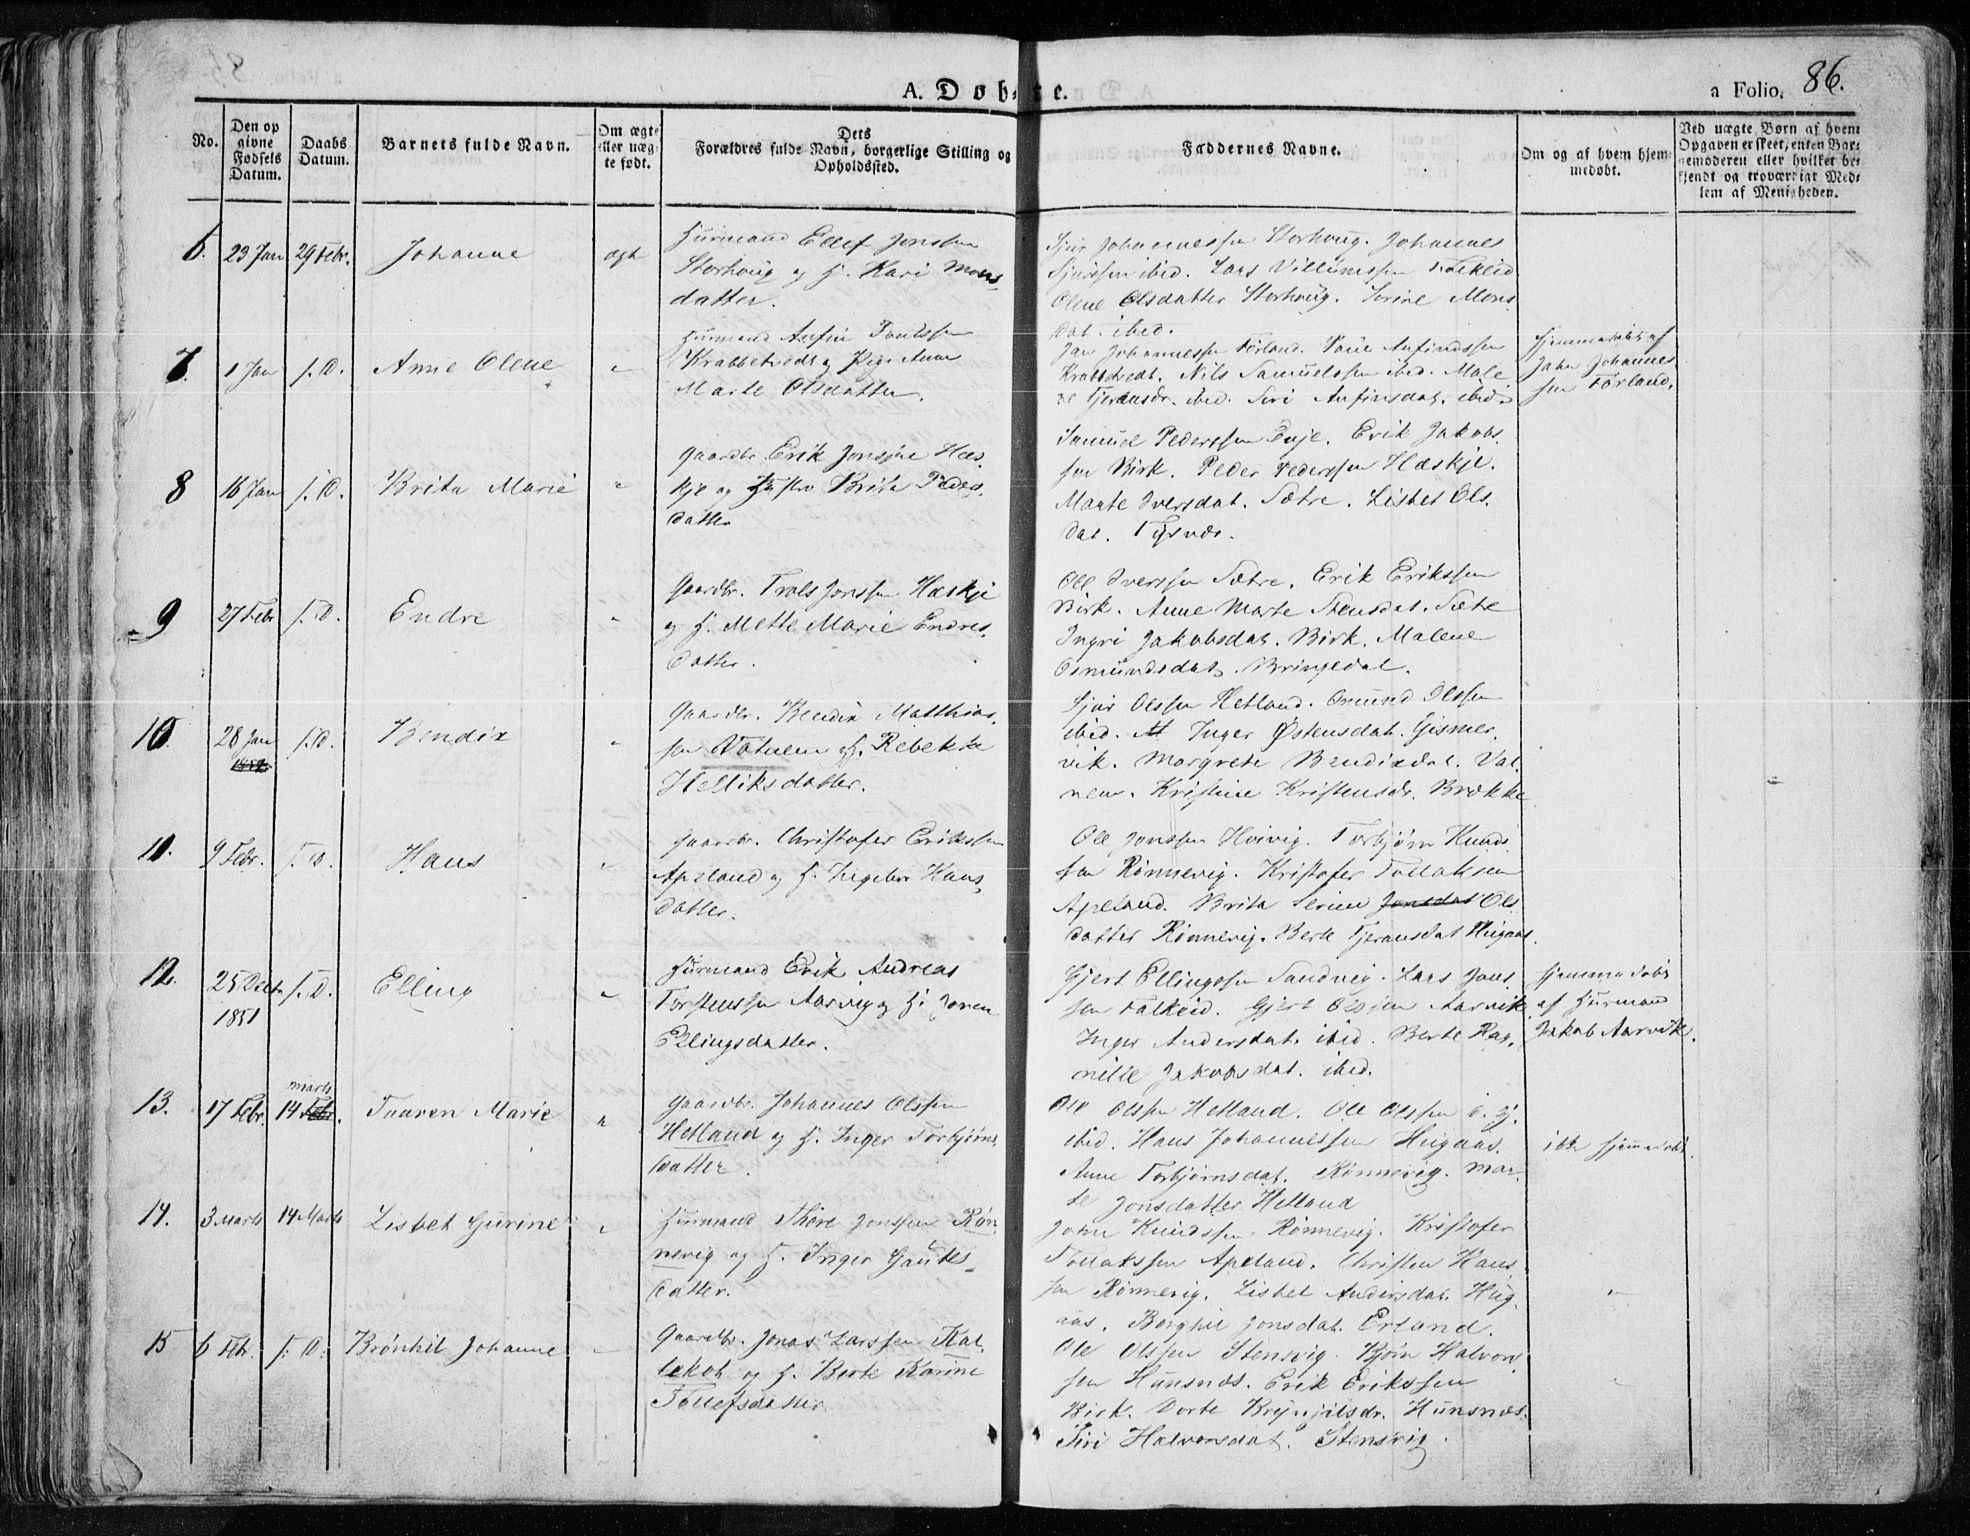 A. Døbte.
a Folio. 86.
No.
Den op
givne
Fødsels
Datum.
Daabs
Datum.
Barnets fulde Navn.
Om ægte
eller uæg-
te født.
Dets
Forældres fulde Navn, borgerlige Stilling og
Opholdssted.
Faddernes Navne.
Om og af hvem hjem-
medøbt.
Ved uægte Børn af hvem
Opgaven er skeet, enten Bar-
nemoderen eller hvilket be-
kjendt og troværdigt Med-
lem af Menigheden.
6. 23 Jan 29 Febr. Johanne ægte
Huusmand Ellef Jonssen
Storhoug og H. Kari Mons
datter.
Sjur Johannessen Storhoug. Johannes
Sjursen ibid. Lars Villumssen
Olene Olsdatter Storhoug. Serine Mons
dat. ibid.
7. 1 Jan s. D. Anne Olene "
Huusmand Anfin
og Pige Anne
Marte Olsdatter.
Jan Johannessen Førland. Anfindssen
Nils Samuelssen ibid. Male
ne Tjeransdr. ibid. Siri Anfinsdat. ibid.
Hjemmedøbt af
John Johannes
sen Førland.
8 16 Jan s. D. Brita Marie "
Gaardbr. Erik Jonssen Hæs
kje og Hustro Brita Peders
datter
Samuel Pederssen Erik Jakobs
sen Birk. Peder Pederssen Hæskje.
Marte Iversdat. Sætre. Lisbet Ols
dat. Tysvær.
9 27 Febr s. D. Endre "
Gaardbr. Trols Jonssen Hæskje
og H. Mette Marie Endres
datter.
Ole Iverssen Sætre. Erik Erikssen
Birk. Anne Marte Stensdat. Sætre
Ingri Jakobsdat. Birk. Malene
Osmundsdat. Bringedal.
10 28 Jan s. D. Bendix "
1852
Gaardbr. Bendix Matthias
sen Vatnem og H. Rebekka
Helliksdatter.
Sjur Olssen Hetland. Osmund Olssen
ibid. Inger Østensdat. Gismer
vik. Margrete Bendixdat. Vat
nem. Kristine Kristensdr. Brække
11. 9 Febr. s. D. Hans "
Gaardbr. Christofer Erikssen
Apeland og H. Ingebor Hans
datter.
Ole Jonssen Hoivig. Torbjørn Knuds
sen Rønnevig. Kristofer Tollaksen
Apeland. Brita Serine Jonsdat Ols
datter Rønnevig. Berte Tjeransdat Hugaas.
12. 25 Decbr s. D. Elling "
1851
Huusmand Erik Andreas
Torstenssen Aarvig og H.
Ellingsdatter.
Gjert Ellingssen Sandvig. Lars Jons
sen Falkeid. Gjert Olssen Aarvik
Inger Andersdat. ibid. Berte Rag
nille Jakobsdat. ibid.
Hjemmedøbt
af Huusmand
Jakob Aarvik.
13. 17 Febr. 14 Febr. Marts Taaren Marie "
Gaardbr. Johannes Olssen
Hetland og H. Inger Torbjørns
datter.
Ole Olssen Hetland. Ole Olssen
ibid. Hans Johannessen Hugaas.
Anne Torbjørnsdat. Rønnevig. Mar
te Jonsdatter Hetland
ikke hjemmedøbt.
14. 3 Marts 14 Marts Lisbet Gurine "
Huusmand Thore Jonssen Røn
nevig og H. Inger Gautes
datter.
John Knudssen Rønnevig. Kristofer
Tollakssen Apeland. Christen Hans
sen Rønnevig. Lisbet Andersdat. Hug
aas. Borghil Jonsdat. Erland.
"
15 6 Febr. s. D. Brønhil Johanne "
Gaardbr. Jonas Larssen Kal
lekot og H. Berte Karine
Tollefsdatter
Ole Olssen Stensvig. Bjørn Halvors
sen Hunsnæs. Erik Erikssen
Birk. Dorte Hunsnæs.
Siri Halvorsdat. Stensvig.
"